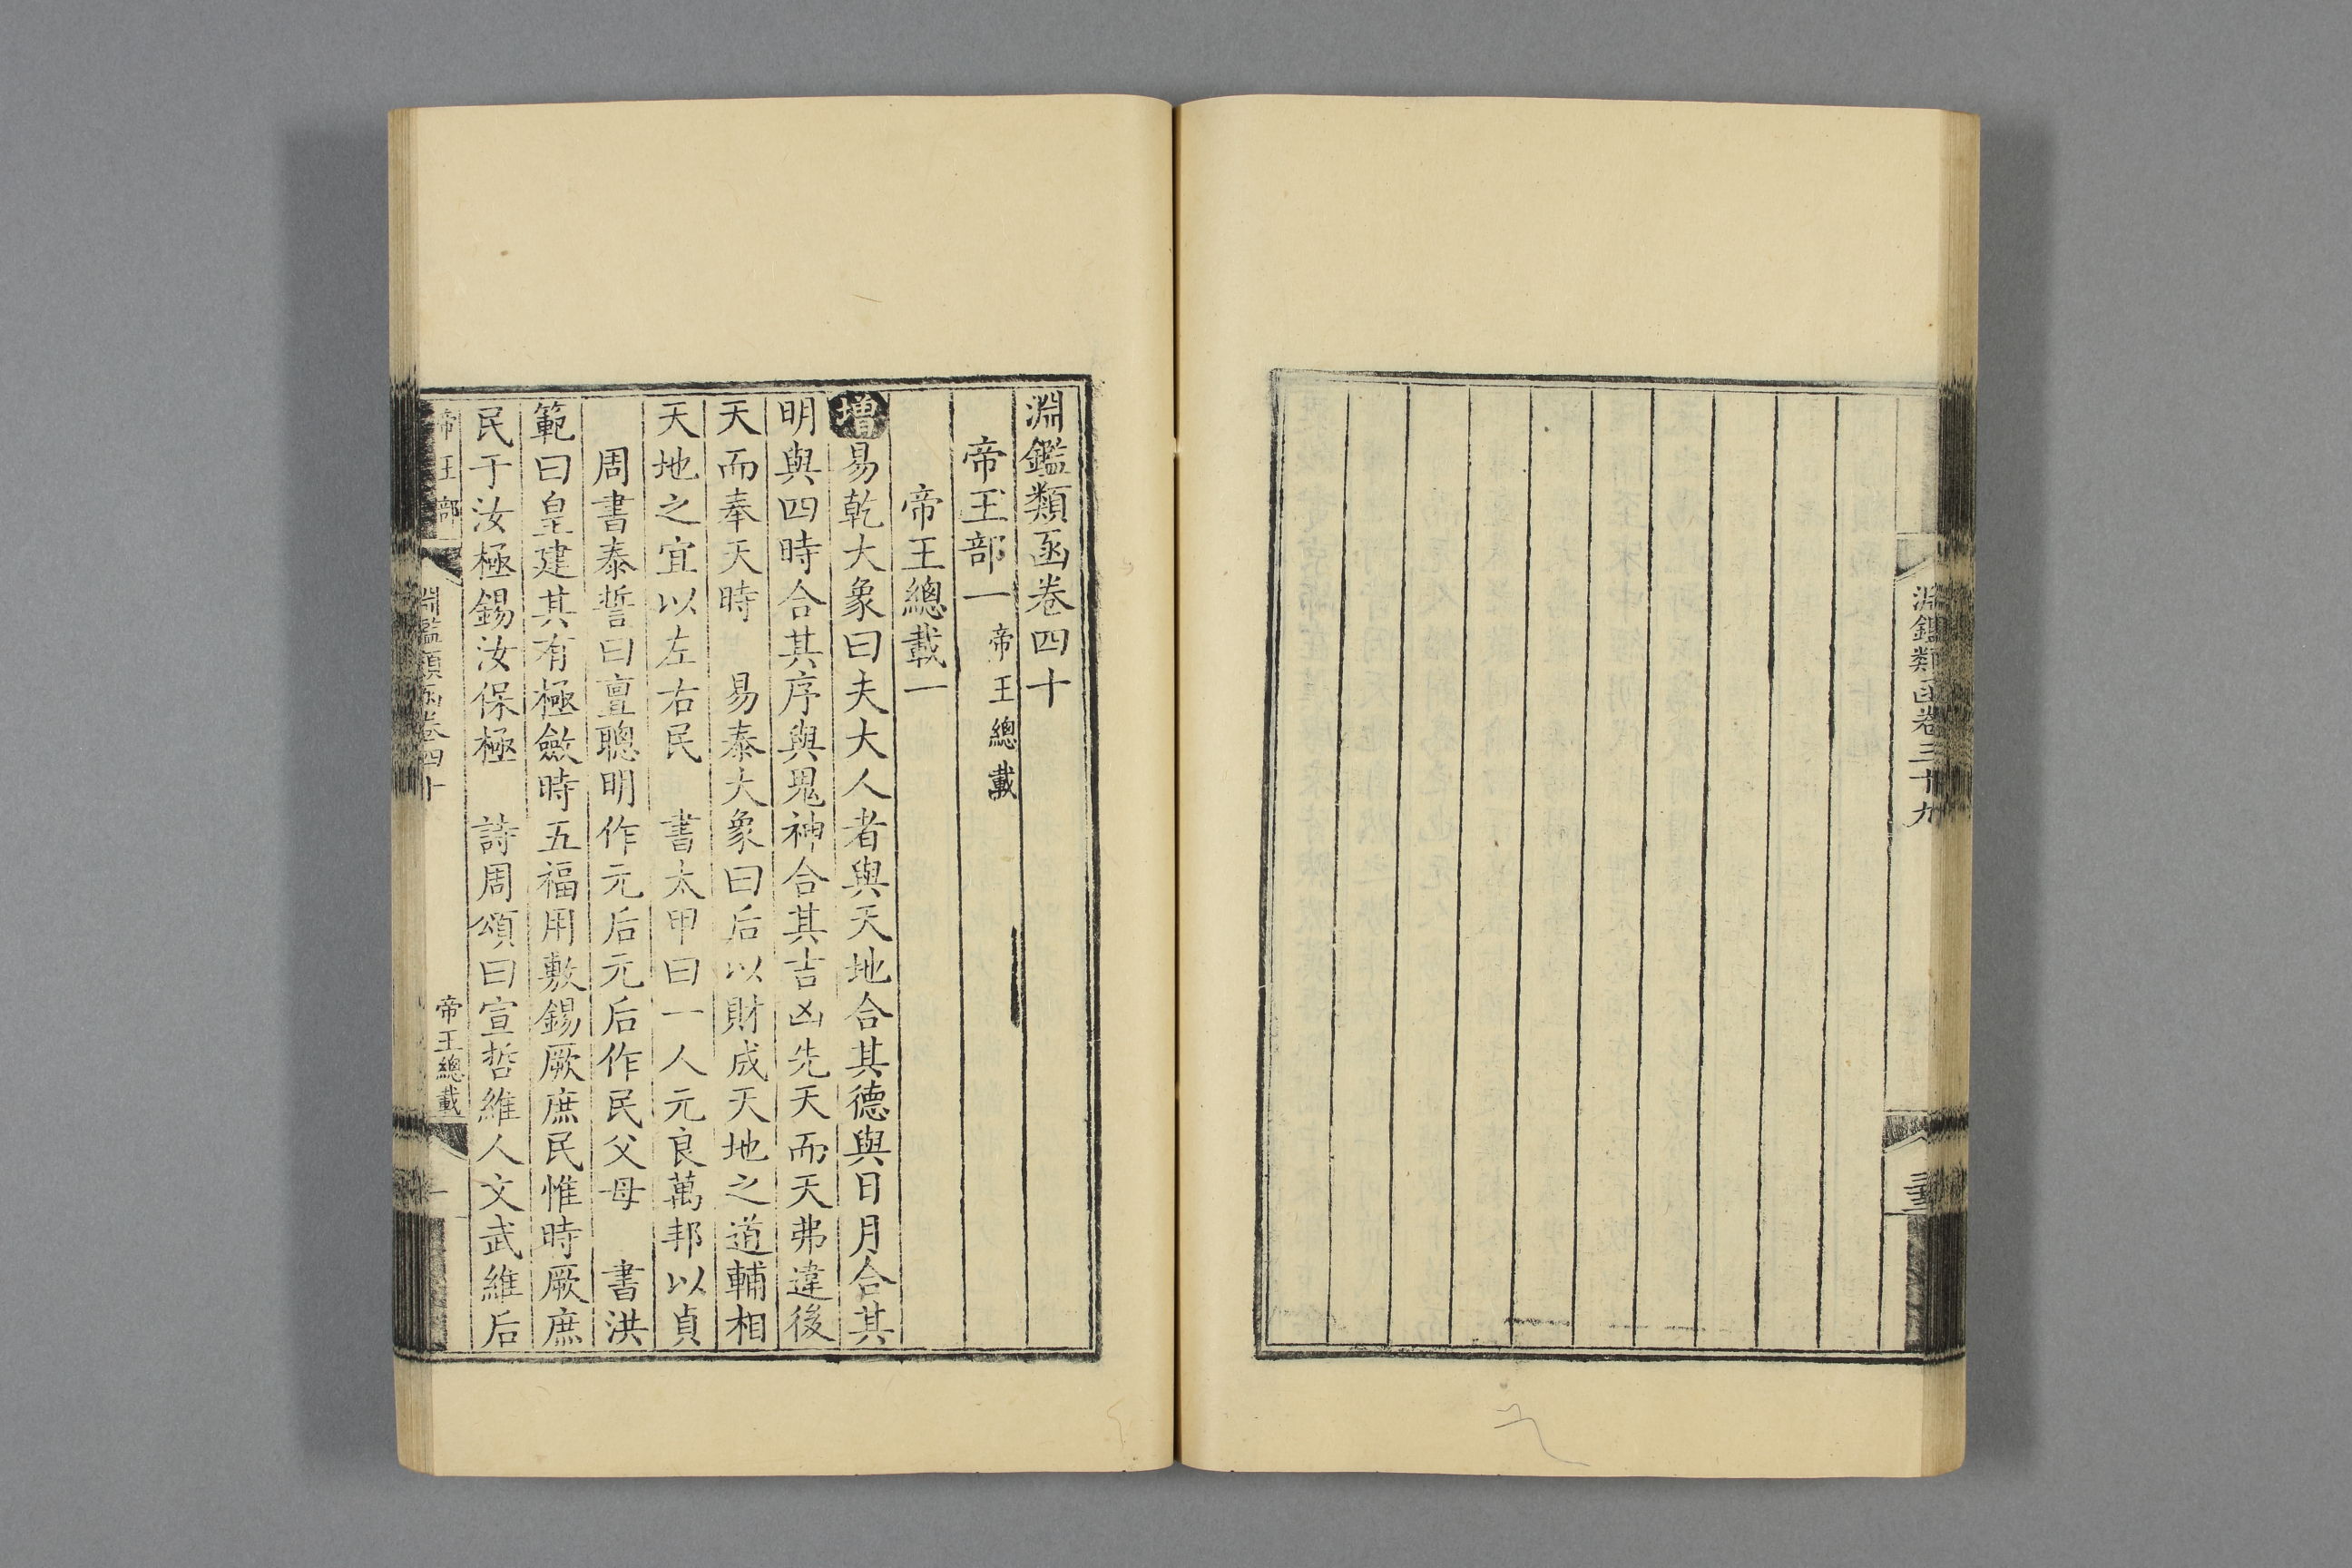 淵鑑類函卷三十九
淵鑑類函卷四十
帝王部一 帝王總載
帝王總載一
增易乾大象曰夫大人者與天地合其德與日月合其
明與四時合其序與鬼神合其吉凶先天而天弗違後
天而奉天時 易泰大象曰后以財成天地之道輔相
天地之宜以左右民 書太甲曰一人元良萬邦以貞
周書泰誓曰亶聰明作元后元后作民父母 書洪
範曰皇建其有極斂時五福用敷錫厥庶民惟時厥庶
民于汝極錫汝保極 詩周頌曰宣哲維人文武維后
帝王部
淵鑑類函卷四十
帝王總載
一